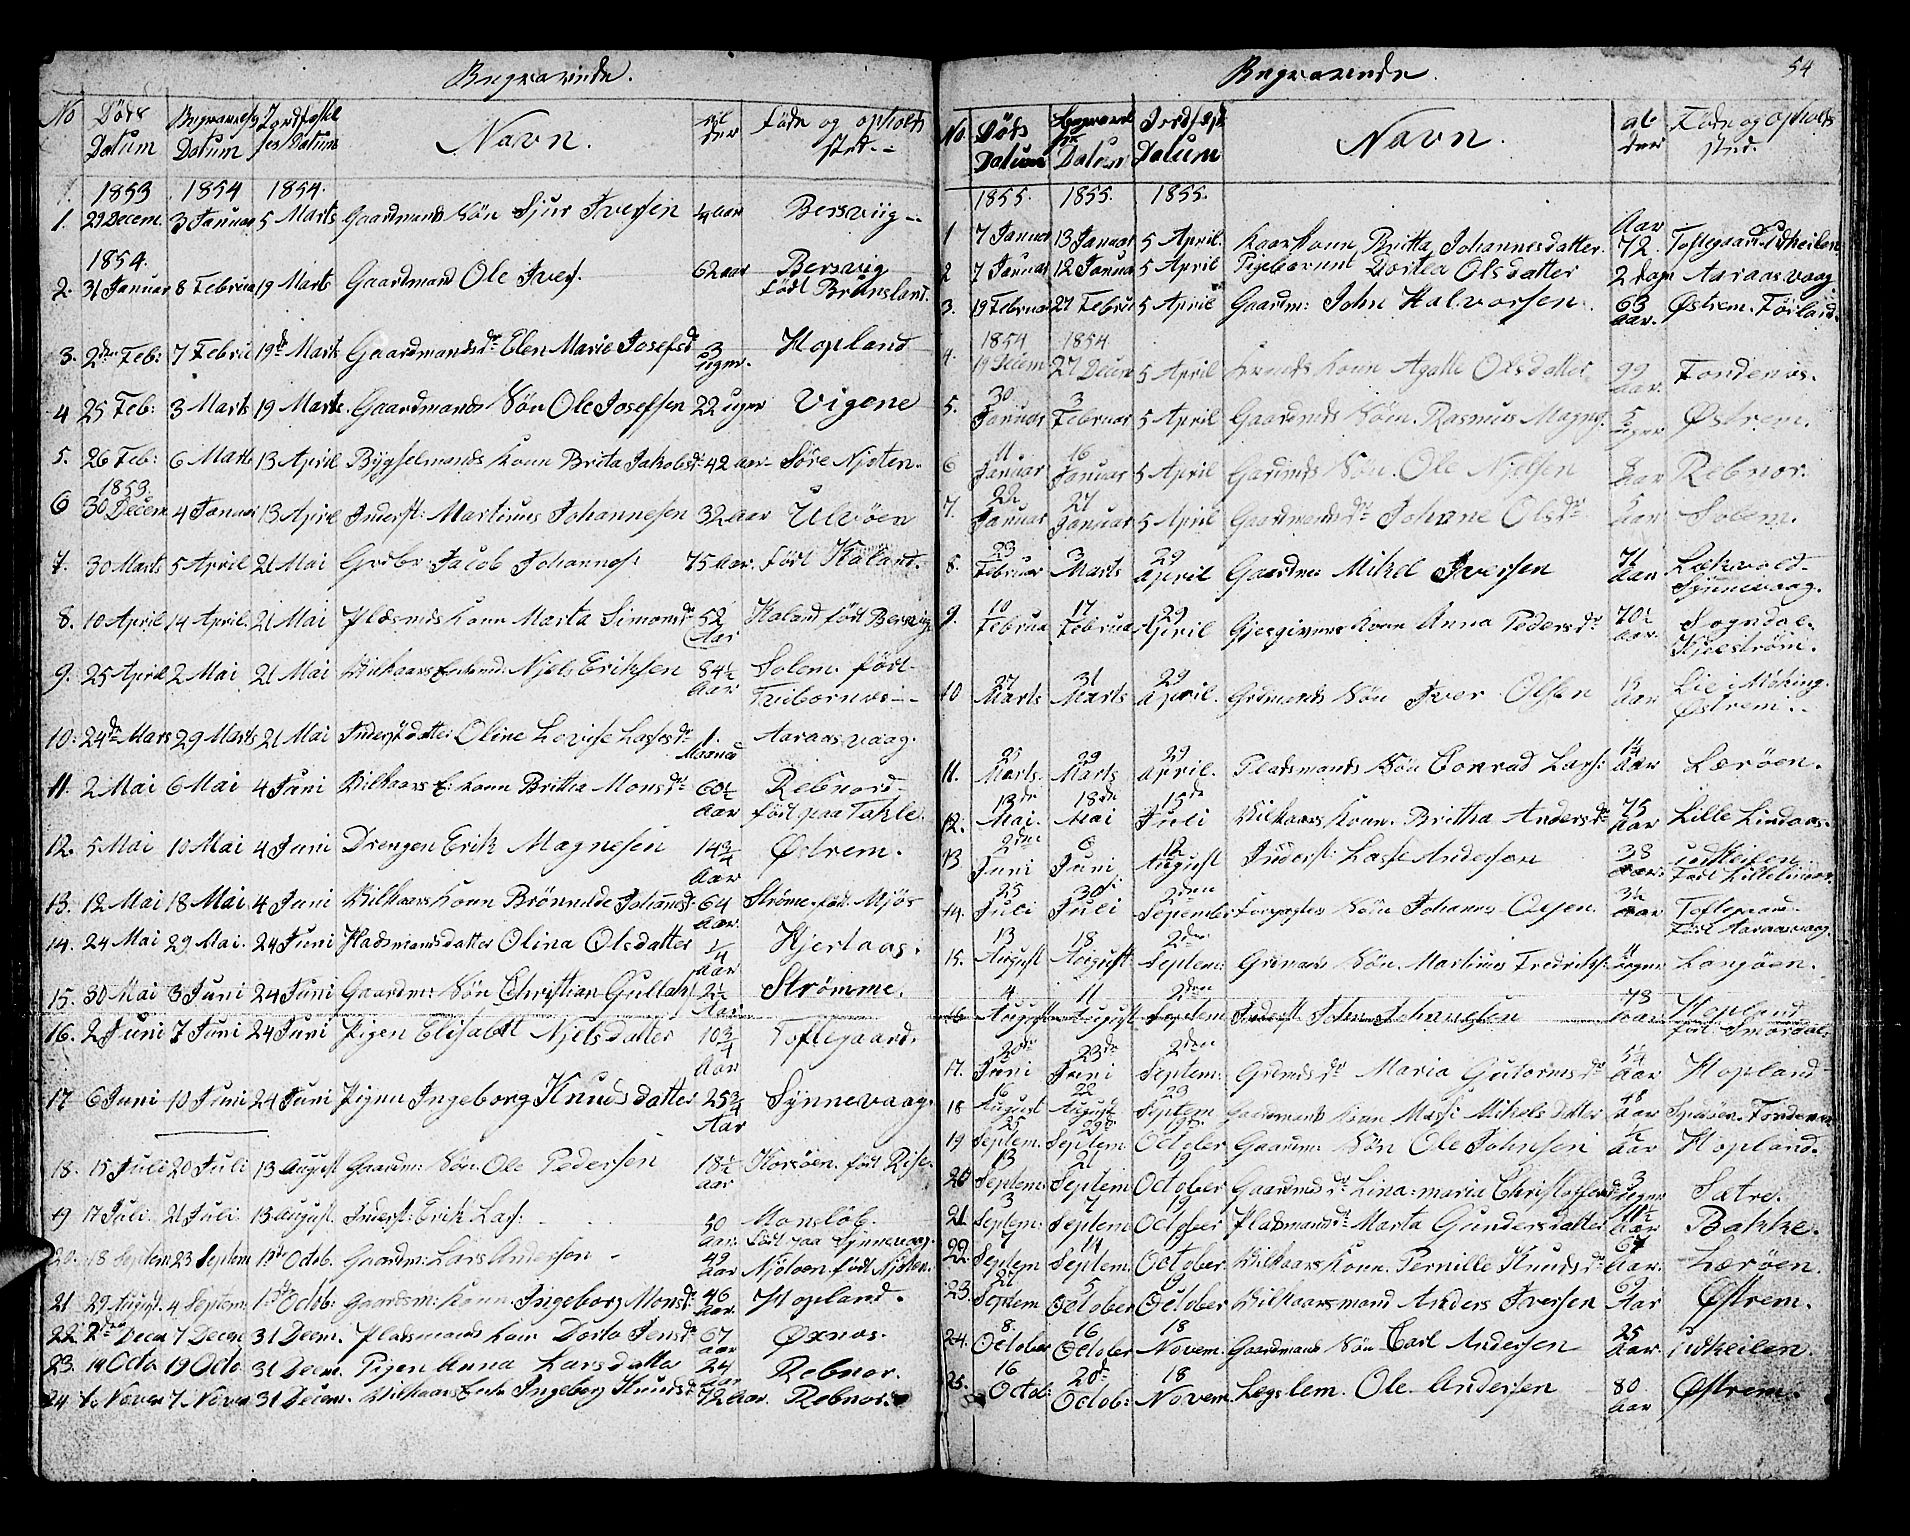 Begravede.
No Döds Datum Begravelses Datum Jordfæstelses Datum Navn. Alder Føde og opholds sted.
1853 1854 1854.
1. 29 Decem. 3 Januar 5 Marts Gaardmands Søn Sjur Iversen ¼ aar Bersviig
1854.
2. 31 Januar 8 Februa 19 Marts Gaardmand Ole Ivers. 62 aar Bersvig født Brunsland.
3. 2den Feb: 7 Febru 19de Marts Gaardmandsdr Elen Marie Josefsd 3 uger. Hopland
4 25 Feb: 3 Marts 19 Marts. Gaardmands Søn Ole Josefsen 22 uger Vigene
5. 26 Feb: 6 Marts 13 April Bygselmands Kone Brita Jakobsdr 42 aar Söre Njöten.
1853
6 30 Decem 4 Januar 13 April Inderst: Martinus Johannesen 32 aar Ulvöen
7. 30 Marts 5 April 21 Mai Grdbr: Jacob Johannes: 75 Aar. født Kaland.
8. 10 April 14 April. 21 Mai Pladsmds Kone Marta Simonsdr 52 Aar Kaland født Bersvig
9. 25 April 2 Mai 21 Mai Vilkaars Enkemd: Njels Eriksen 84½ Aar Solem. født
10. 24de Mars 29 Marts 21 Mai Inderstdatter Oline Lovise Lassesdr 1. Maaned Aaraasvaag.
11. 2 Mai 6 Mai 4 Juni Vilkaars E: kone Brittha Monsdr 60½ Aar Rebnor født paa Takle.
12. 5 Mai 10 Mai 4 Juni Drengen Erik Magnesen 14¾ Aar Østrem.
13. 12 Mai 18 Mai 4 Juni Vilkaars Kone Brönnilde Johannsdr 64 Aar. Strömme. født. Mjös
14. 24 Mai 29 Mai. 24 Juni Pladsmandsdatter Olina Olsdatter ¼ Aar Hjertaas.
15. 30 Mai 3 Juni 24 Juni Gaardm: Søn Christian Gullaks 2½ Aar Strømme.
16. 2 Juni 7 Juni 24 Juni Pigen Elisabtt Njelsdatter 10¾ Aar Toftegaard.
17 6 Juni 10 Juni 24 Juni Pigen Ingeborg Knudsdatter 25¾ Aar Synnevaag.
18. 15 Juli 20 Juli 13 August Gaardm: Søn. Ole Pedersen 18½ aar Korsöen. født Rise.
19 17 Juli. 21 Juli. 13 August. Inderst: Erik Lars: 50 Aar. Monslöb. født paa Synnevaag.
20. 18 Septem 23 Septem 1ste Octob. Gaardm: Lars Andersen 49 Aar Njöten født Njöten.
21 29 August. 4 Septem. 1ste Octob: Gaardsm: Kone Ingeborg Monsdr 46 Aar. Hopland.
22 2den Decm 7 Decm 31 Decm. Pladsmands Kone Dorto Jensdr 67 aar Øxnæs.
23. 14 Octo 19 Octo 31 Decm. Pigen Anna Larsdatter 24 Aar Rebnor.
24 Novem 7 Novem 31 Decem. Vilkaars Enke Ingeborg Knudsdr 72 Aar. Rebnor.
Begravede. 54
No Döds Datum Begravelses Datum Jordfæst Datum Navn. alder Føde og Opholds sted.
1855. 1855. 1855.
1 7 Januar 13 Januar 5 April. Kaarkone Britta Johannesdatter. Aar 72. Toftegaard. Udkeilen
2 7 Januar 12 Januar 5 April Pigebarnet Dortea Olsdatter 2 dage Aaraasvaag
3. 19 Februar 27 Februa 5 April Gaardm: John Halvorsen. 63 Aar. Østrem. Förland.
1854 1854
4. 19 Decem 27 Decem 5 April Kone Agatte Olsdatter Aar. Fondenæs.
5. 30 Januar 3 Februar 5 April Gaardmds Søn. Rasmus Magnes. 5 uger Østrem.
6 11 Januar 16 Januar 5 April Gardmds Søn. Ole Njelsen Aar Rebnor.
7. 22 Januar 27 Januar 5 April Gaardmandsdr Johane Olsdr 5 aar Solem.
8. 23 Februar 3 Marts 29 April Gaardm Mikel Iversen 71 Aar Synnevaag.
9. 10 Februa 17 Februa 29 April Gjesgivers Kone Anna Pedersdr 70½ Aar. Sogndal.
10 27 Marts 31 Marts 29 April. Grdmands Søn Iver Olsen Aar Lie i Möking. Østrem.
11. 25 Marts. 29 Marts 29 April. Pladsmands Søn Conrad Lars: ¼ Aar Lærøen.
12. 13de Mai. 18de Mai 15de Juli Vilkaars Kone. Brittha Andersdr 75 Aar Lille Lindaas.
13. 2den Juni 6 Juni 12 August Inderst: Lasse Anderson 38 Aar. Udkeilen
14. 25 Juli 30 Juli 2den Septenber Søn Johannes Olsen. Aar Toftegaard. født Aaraasvaag.
15. 13 August 18 August 2den Septem: Grdmands Søn. Martinus Fredriks: 11 uger Langøen.
16 4 August 11 August 2den Septem Inderst John Johannesen 78 Aar Hopland født Smördal
17. 20de Juni 23de Juni 2den Septem: Grdmdsdr Maria Gutormsdr Aar Hopland
18 16 August 22 August 29 Septem Gaardmands Kone Marsi Mikelsdatter Aar Fondenæs
19 25 Septem. 29de Septem 19de October Gaardm: Søn Ole Johnsen Aar Hopland.
20 13 Septem: 21 Septem 19 October Gaardmdsdr Lina: maria Christoffersdr 3 uger Sætre.
21. 3 Septem: 7 Septem 19 October Pladsmandsdr Marta Gundersdatter 11½ Aar Bakke.
22. 7 Septem 14 Septem. October Vilkaars Kone. Pernille Knudsdr 67 Aar. Lærøen.
23. 27 Septem 5 October 19 October Vilkaarsmand Anders Iversen 69 Aar Østrem.
24. 8. October 16 October 18 Novem. Gaardmands Søn Carl Andersen 25 Aar. Udkeilen.
25. 16 Octob: 20de Octob: 18 Novem. Lægslem. Ole Andersen 80. Aar Østrem.